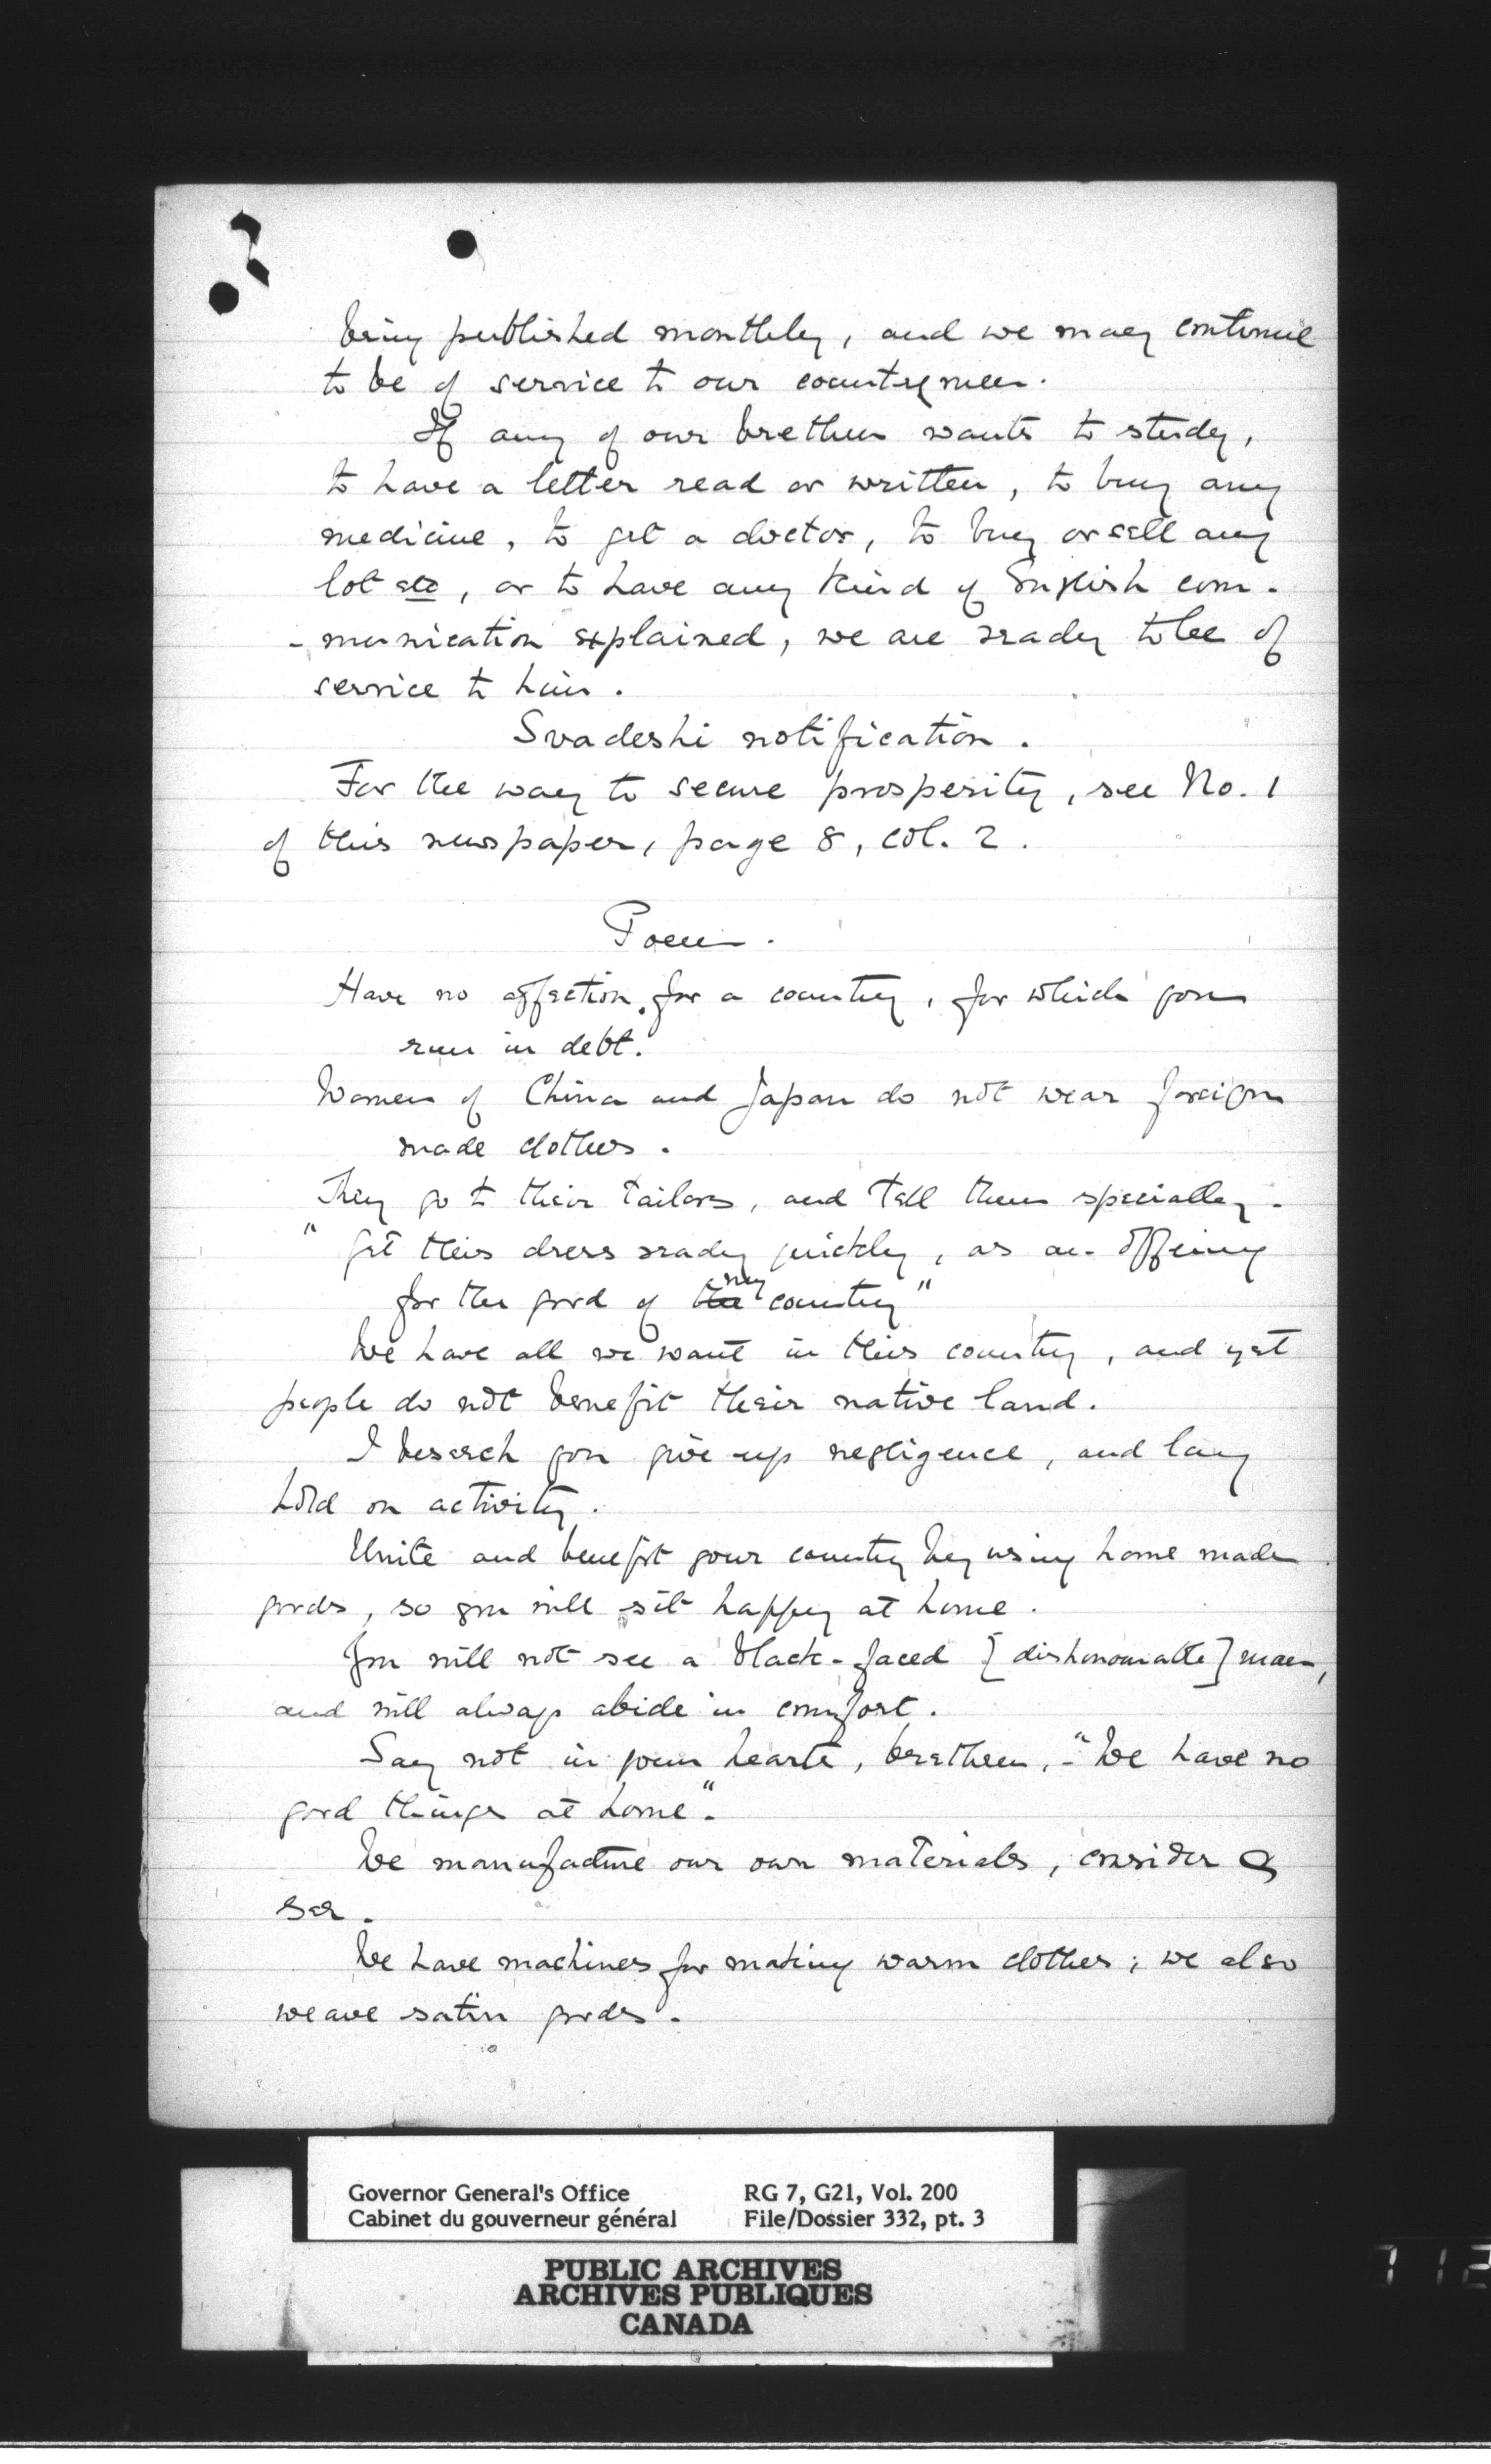 being published monthly, and we may continue
to be of service to our countrymen.
If any of our brethren wants to study,
to have a letter read or written, to buy any
medicine, to get a doctor, to buy or sell any
lot etc, or to have any kind of English com-
-munication explained, we are ready to be of
service to him.
Svadeshi notification.
For the way to secure prosperity, see No. 1
of this newspaper, page 8, col. 2.
Poem.
Have no affection for a country, for which you
run in debt.
Women of China and Japan do not wear foreign
made clothes.
They go to their tailors, and tell them specially-
"Get this dress ready quickly, as an offering
for the good of the my country"
We have all we want in this country, and yet
people do not benefit their native land.
I beseech you give up negligence, and lay
hold on activity.
Unite and benefit your country by using home made
goods, so you will sit happy at home.
You will not see a black-faced [dishonourable] man,
and will always abide in comfort.
Say not in your hearts, brethren, - "We have no
good things at home".
We manufacture our own materials, consider &
see.
We have machines for making warm clothes; we also
weave satin goods.
Governor General's Office RG 7, G21, Vol. 200
Cabinet du gouverneur général File/Dossier 332, pt. 3
PUBLIC ARCHIVES
ARCHIVES PUBLIQUES
CANADA
712